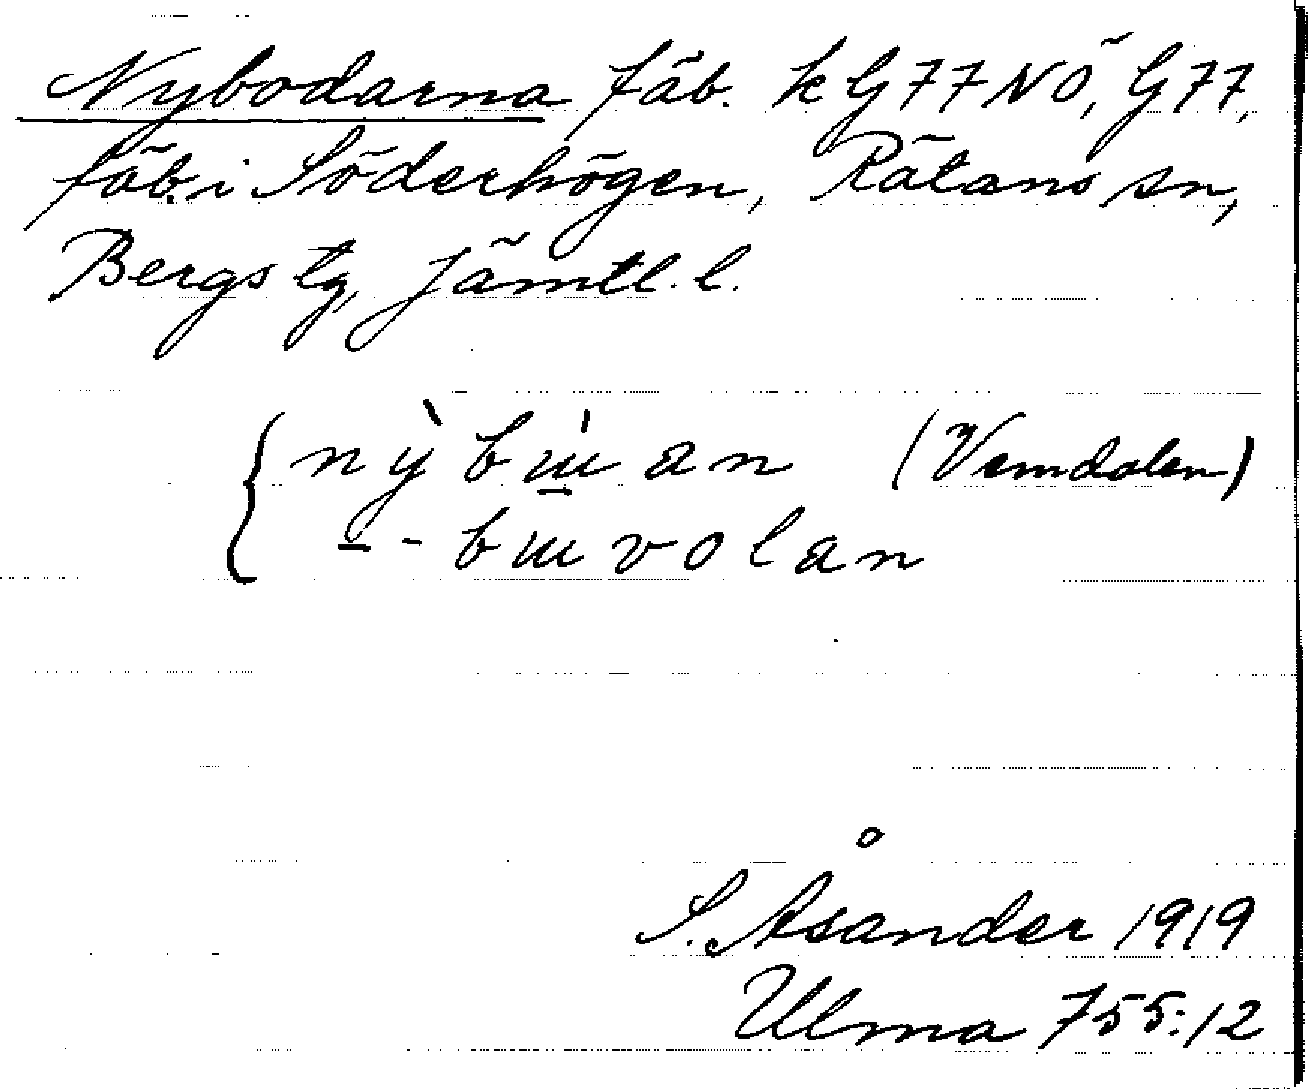 Nybodarna fäb. k G77 NÖ, G77,
fäb. i Söderhögen, Rätans sn,
Bergs tg, Jämtl. l.
{ ny̍ b ɯ̍ a n (Vemdalen)
– - b ɯ v o l a n
S. Åsander 1919
Ulma 755:12